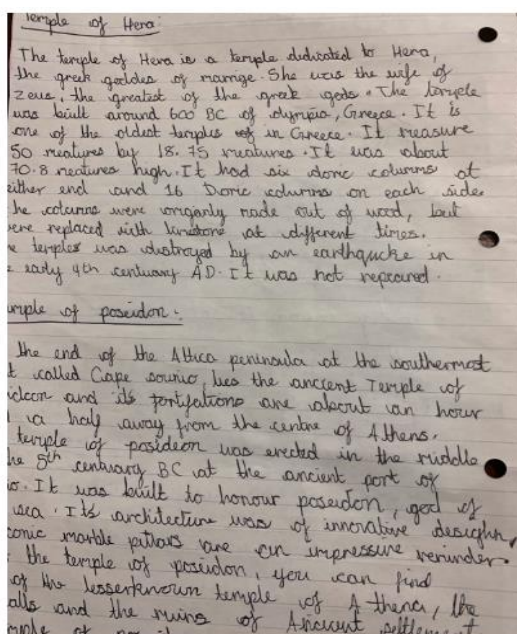 Temple of Hera:
The temple of Hera is a temple dedicated to Hera,
the greek goddes of marrige. She was the wife of
Zeus, the greatest of the greek gods. The temple
was built around 600 BC of olympia, Greece. It is
one of the oldest temples of in Greece. It measure
50 meatures by 18.75 meatures. It was about
70.8 meatures high. It had six doric columns at
either end and 16 Doric columns on each side.
he columns were origanly made out of wood, but
ere replaced with limestone at different times.
e temples was distroyed by an earthquicke in
e early 4th centuary AD. It was not repeared.
mple of poseidon:
the end of the Attica peninsula at the southermost
t called Cape sounio, lies the ancient Temple of
and its fortifations are about an hour
a half away from the centre of Athens.
temple of posideon was erected in the middle
he 5th centuary BC at the ancient port of
o. It was built to honour poseidon, god of
sea. Its architecture was of innovative desighn,
conic marble pillars are an impressive reminder
the temple of poseidon, you can find
of the lesserknown temple of Athena, the
alls and the ruins of Ancient settlement